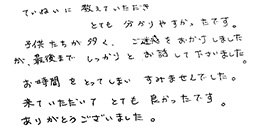 ていねいに 教えていただき
とても 分かりやすかったです。
子供たちが多く、ご迷惑をおかけしました
が、最後まで しっかりと お話して下さいました
お時間をとってしまい すみませんでした。
来ていただいて とても 良かったです。
ありがとうございました。